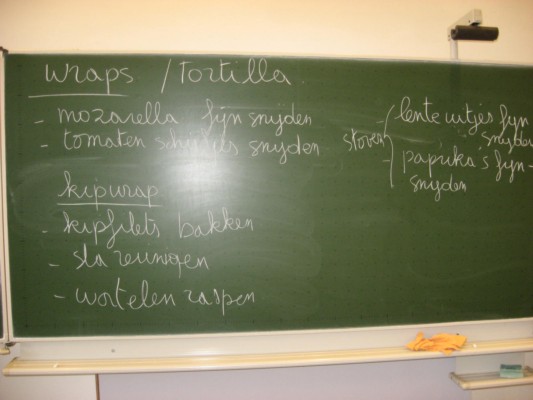 wraps / Tortilla
- mozarella fijn snijden
- tomaten schijfjes snijden
kipwrap
- kipfilets bakken
- sla reinigen
- wortelen raspen
stoven
- lente uitjes fijn
snijden
- paprika's fijn-
snijden